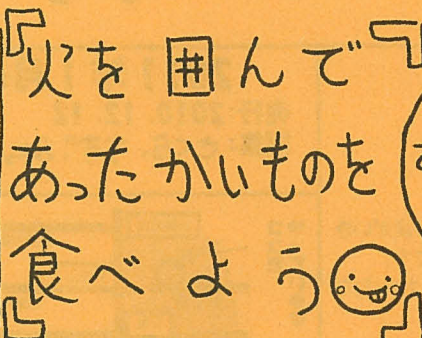 『火を囲んで
あったかいものを
食べよう』